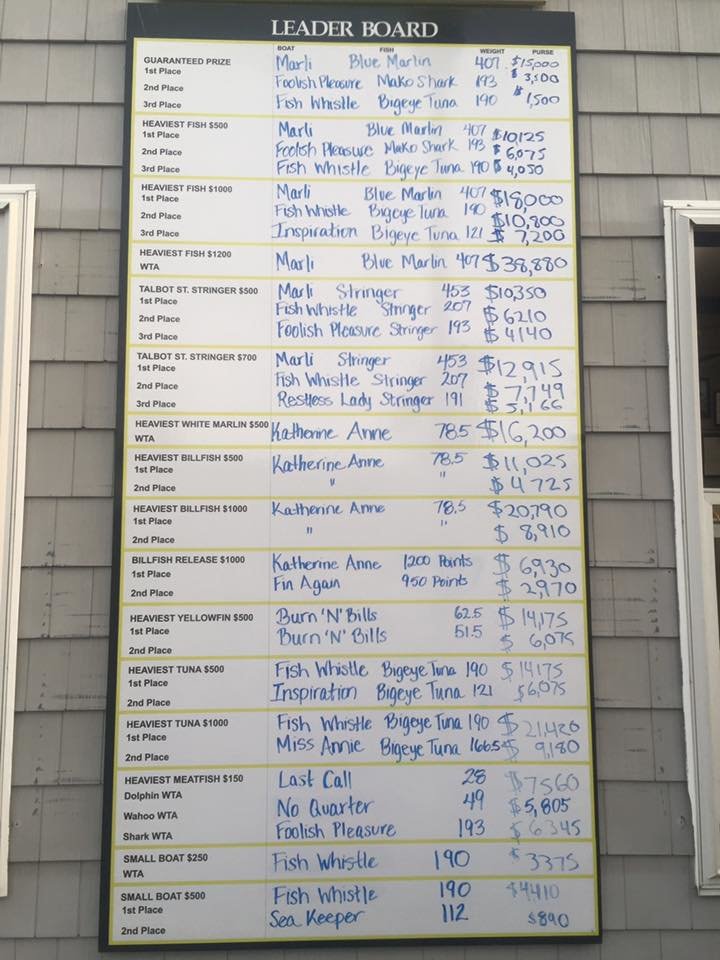 LEADER BOARD
BOAT FISH WEIGHT PURSE
GUARANTEED PRIZE
1st Place Marli Blue Marlin 407 $15,000
2nd Place Foolish Pleasure Mako Shark 193 $3,500
3rd Place Fish Whistle Bigeye Tuna 190 $1,500
HEAVIEST FISH $500
1st Place Marli Blue Marlin 407 $10,125
2nd Place Foolish Pleasure Mako Shark 193 $6,075
3rd Place Fish Whistle Bigeye Tuna 190 $4,050
HEAVIEST FISH $1000
1st Place Marli Blue Marlin 407 $18,000
2nd Place Fish Whistle Bigeye Tuna 190 $10,800
3rd Place Inspiration Bigeye Tuna 121 $7,200
HEAVIEST FISH $1200
WTA Marli Blue Marlin 407 $38,880
TALBOT ST. STRINGER $500
1st Place Marli Stringer 453 $10,350
2nd Place Fish Whistle Stringer 207 $6210
3rd Place Foolish Pleasure Stringer 193 $4140
TALBOT ST. STRINGER $700
1st Place Marli Stringer 453 $12,915
2nd Place Fish Whistle Stringer 207 $7,749
3rd Place Restless Lady Stringer 191 $5,166
HEAVIEST WHITE MARLIN $500
WTA Katherine Anne 78.5 $16,200
HEAVIEST BILLFISH $500
1st Place Katherine Anne 78.5 $11,025
2nd Place " " $4725
HEAVIEST BILLFISH $1000
1st Place Katherine Anne 78.5 $20,790
2nd Place " " $8,910
BILLFISH RELEASE $1000
1st Place Katherine Anne 1200 Points $6,930
2nd Place Fin Again 950 Points $2,970
HEAVIEST YELLOWFIN $500
1st Place Burn 'N' Bills 62.5 $14,175
2nd Place Burn 'N' Bills 51.5 $6,075
HEAVIEST TUNA $500
1st Place Fish Whistle Bigeye Tuna 190 $14175
2nd Place Inspiration Bigeye Tuna 121 $6,075
HEAVIEST TUNA $1000
1st Place Fish Whistle Bigeye Tuna 190 $21,420
2nd Place Miss Annie Bigeye Tuna 166.5 $9,180
HEAVIEST MEATFISH $150
Dolphin WTA Last Call 28 $7560
Wahoo WTA No Quarter 49 $5,805
Shark WTA Foolish Pleasure 193 $6345
SMALL BOAT $250
WTA Fish Whistle 190 $3375
SMALL BOAT $500
1st Place Fish Whistle 190 $4410
2nd Place Sea Keeper 112 $890